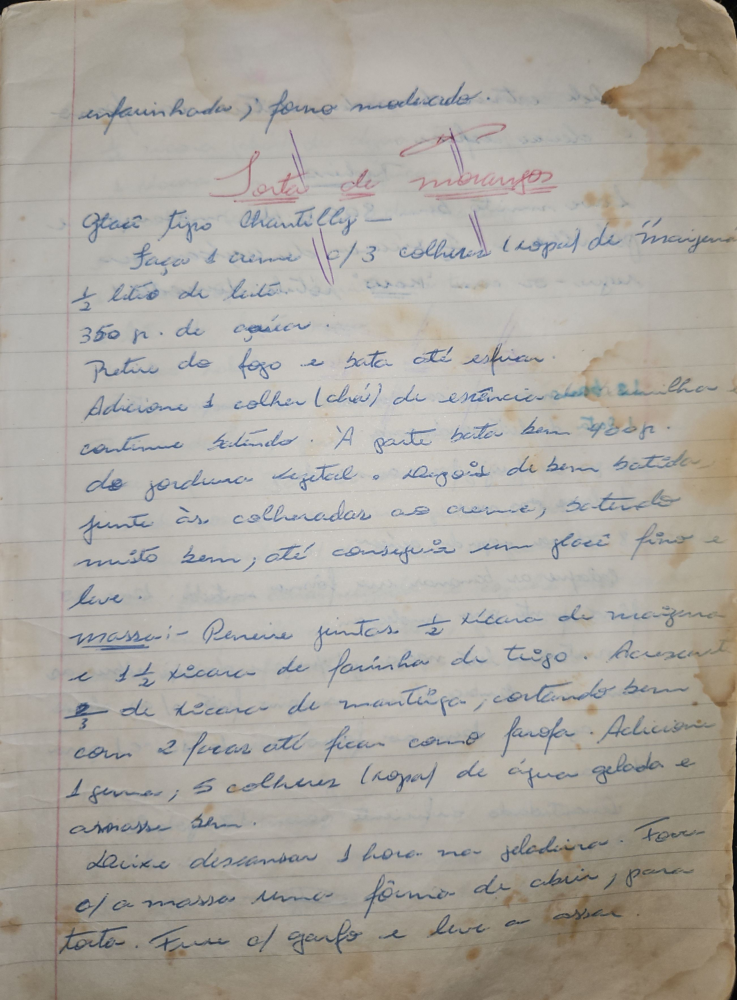 enfarinhada; forno moderado.
Torta de Morangos
Glacê tipo Chantilly -
Faça 1 creme c/ 3 colheres (sopa) de "maizena
1/2 litro de leite
350 gr. de açúcar.
Retire do fogo e bata até esfriar.
Adicione 1 colher (chá) de essência baunilha e
continue batendo. À parte bata bem 450 gr.
de gordura vegetal. Depois de bem batida,
junte às colheradas ao creme, batendo
muito bem, até conseguir um glacê fino e
leve.
massa:- Peneire juntas 1/2 xícara de maizena
e 1 1/2 xícara de farinha de trigo. Acrescent
2/3 de xícara de manteiga, cortando bem
com 2 facas até ficar como farofa. Adicione
1 gema, 5 colheres (sopa) de água gelada e
amasse bem.
Deixe descansar 1 hora na geladeira. Forre
c/ a massa uma fôrma de abrir, para
torta. Fure c/ garfo e leve a assar.